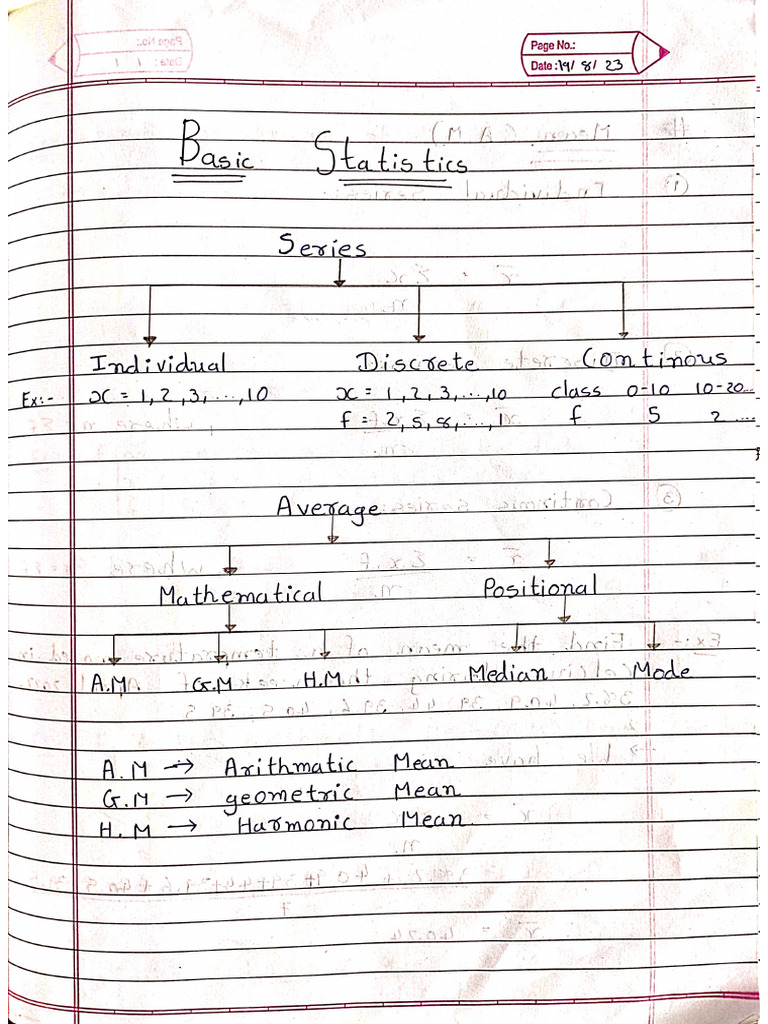 Page No.:
Date: 19/ 8/ 23
Basic Statistics
Series
Individual Discrete Continous
Ex:- x = 1, 2, 3, ..., 10 x = 1, 2, 3, ..., 10 class 0-10 10-20...
f = 2, 5, 8, ..., 1 f 5 2 ....
Average
Mathematical Positional
A.M G.M H.M Median Mode
A.M → Arithmatic Mean
G.M → geometric Mean
H.M → Harmonic Mean